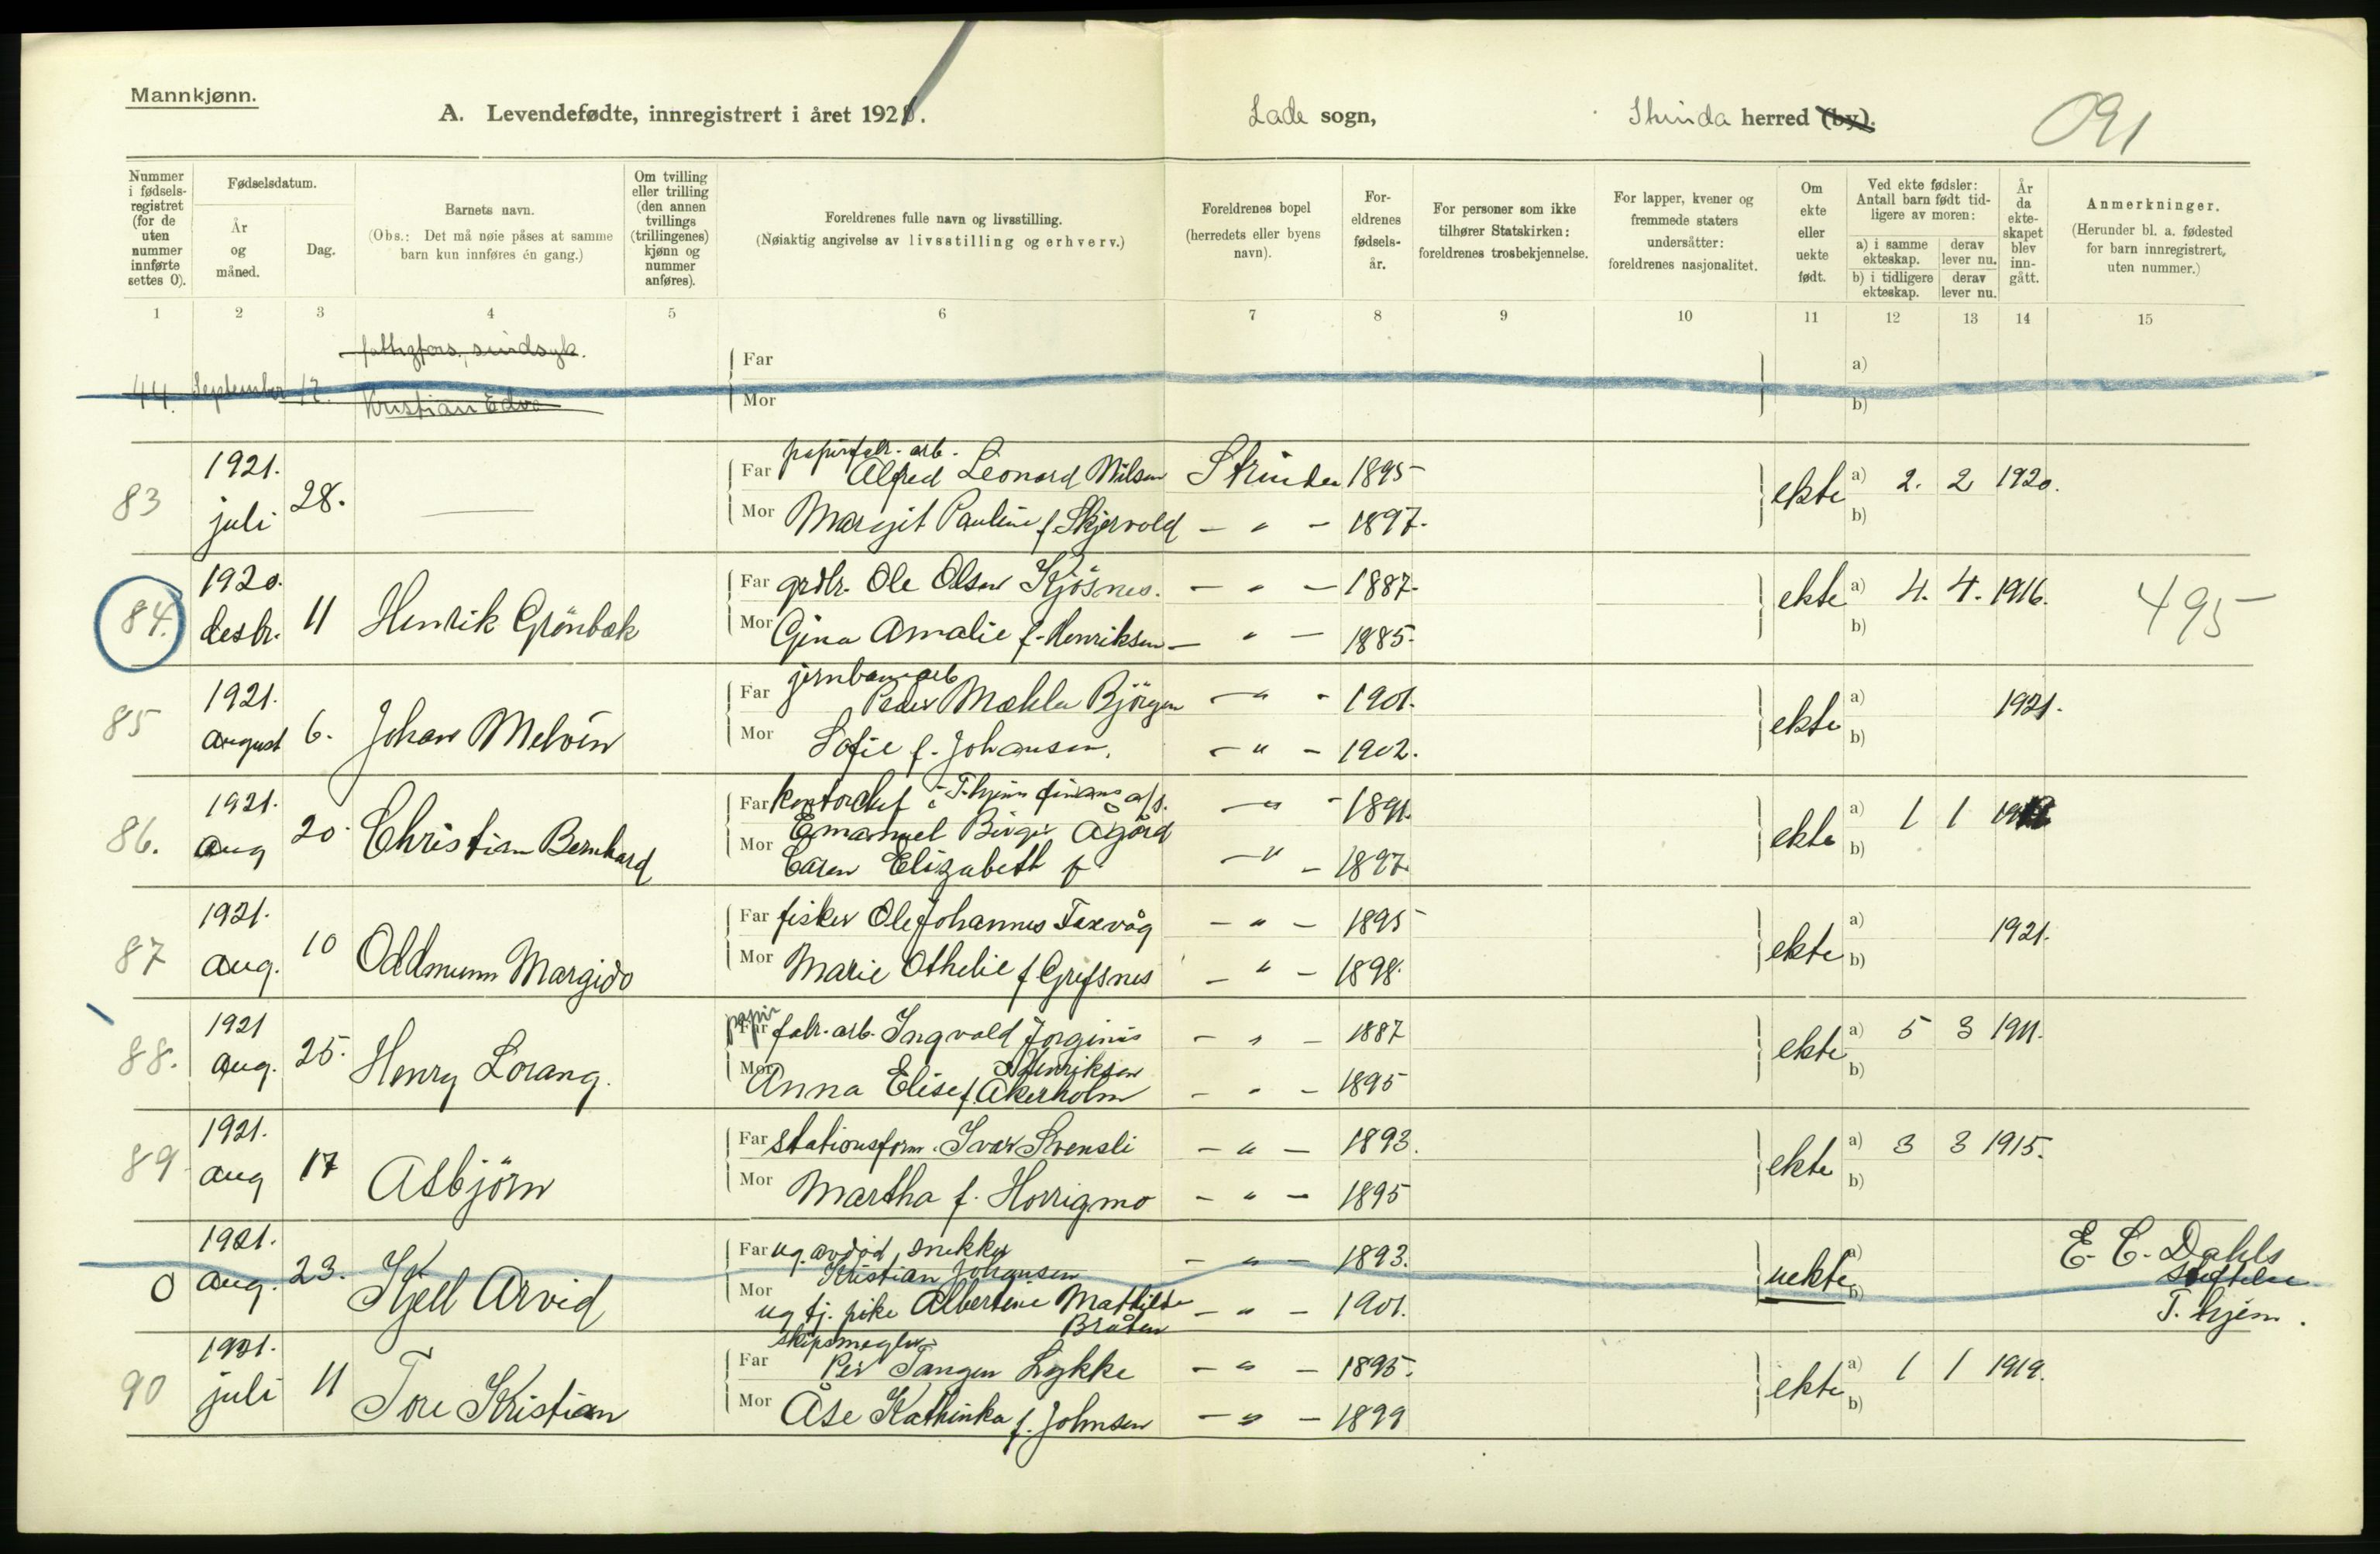 Mannkjønn.
A. Levendefødte, innregistrert i året 1921.
Lade sogn,
Strinda herred (by).
091
Nummer i fødselsregistret (for de uten nummer innførte settes 0).
Fødselsdatum.
År og måned.
Dag.
Barnets navn.
(Obs.: Det må nøie påses at samme barn kun innføres én gang.)
Om tvilling eller trilling (den annen tvillings (trillingenes) kjønn og nummer anføres).
Foreldrenes fulle navn og livsstilling.
(Nøiaktig angivelse av livsstilling og erhverv.)
Foreldrenes bopel (herredets eller byens navn).
Foreldrenes fødselsår.
For personer som ikke tilhører Statskirken: foreldrenes trosbekjennelse.
For lapper, kvener og fremmede staters undersåtter: foreldrenes nasjonalitet.
Om ekte eller uekte født.
Ved ekte fødsler: Antall barn født tidligere av moren:
a) i samme ekteskap.
derav lever nu.
b) i tidligere ekteskap.
derav lever nu.
År da ekteskapet blev inngått.
Anmerkninger.
(Herunder bl. a. fødested for barn innregistrert, uten nummer.)
1 2 3 4 5 6 7 8 9 10 11 12 13 14 15
fattigfors, sindsyk.
44. September 12. Kristian Edva
Far
Mor
a)
b)
83 1921. juli 28. —
Far papirfabr. arb. Alfred Leonard Nilsen Strinda 1895
Mor Margit Pauline f. Skjervold – " – 1897.
ekte a) 2. 2 1920.
b)
84. 1920. desbr. 11 Henrik Grönbæk
Far grdbr. Ole Olsen Kjösnes. – " – 1887.
Mor Gina Amalie f. Henriksen – " – 1885.
ekte a) 4. 4. 1916. 495
b)
85 1921. august 6. Johan Melvin
Far jernbanearb Peder Mækla Björgen – " – 1901.
Mor Sofie f. Johansen. – " – 1902.
ekte a) 1921.
b)
86. 1921. aug 20. Christian Bernhard
Far kontorchef i T.hjems finans a/s. – " – 1891.
Emanuel Birger Ågård
Mor Caren Elizabeth f – " – 1897.
ekte a) 1 1
b)
87 1921. aug. 10 Oddmunn Margido
Far fisker Ole Johannes Faxvåg – " – 1895
Mor Marie Othelie f. Grefsnes – " – 1898.
ekte a) 1921.
b)
88. 1921 aug. 25. Henry Lorang.
Far papir fabr. arb. Ingvald Jorginus – " – 1887
Henriksen
Mor Anna Elise f. Åkerholm – " – 1895
ekte a) 5 3 1911.
b)
89 1921. aug 17 Asbjörn
Far stationsform. Ivar Svensli – " – 1893.
Mor Martha f. Horrigmo – " – 1895
ekte a) 3 3 1915.
b)
0 1921. aug. 23. Kjell Arvid
Far ug. avdød, snekker – " – 1893.
Kristian Johansen
Mor ug tj. pike Albertine Mathilde Bråten – " – 1901.
uekte a)
b)
E. C. Dahls
Stiftelse
T.hjem.
90 1921. juli 11 Tore Kristian
Far skipsmegler Per Tangen Lykke – " – 1895.
Mor Åse Kathinka f. Johnsen – " – 1899
ekte a) 1 1 1919.
b)